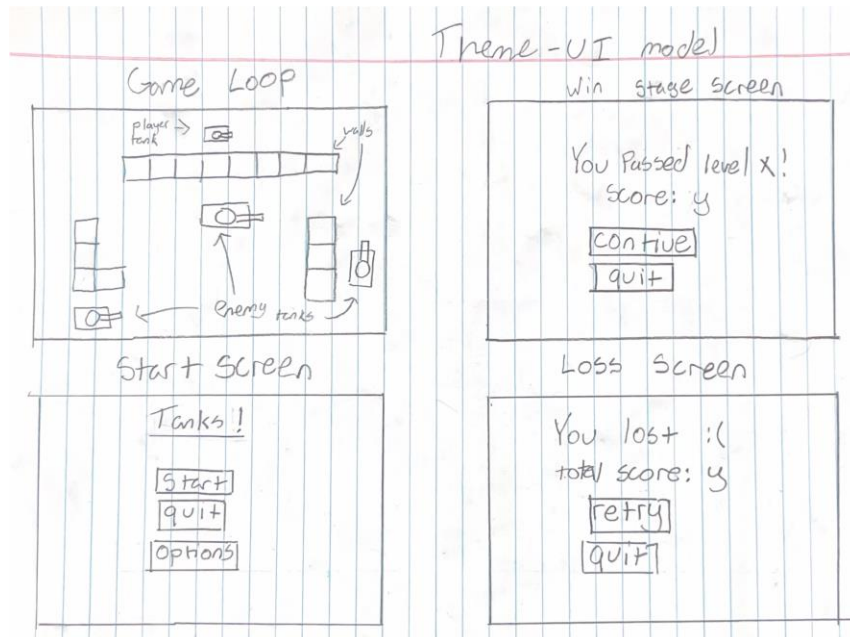 Theme-UI model
Game Loop
player
tank
walls
enemy tanks
Win Stage Screen
You Passed level x!
Score: y
contive
quit
Start Screen
Tanks!
Start
quit
Options
Loss Screen
You lost :(
total score: y
retry
quit